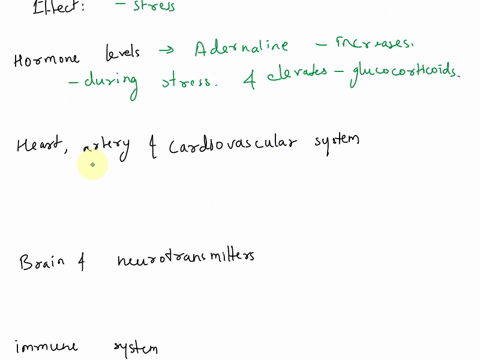 Effect: - stress
Hormone levels → Adernaline - increases.
- during stress. & elevates - glucocorticoids.
Heart, artery & cardiovascular system
Brain & neurotransmitters
immune system